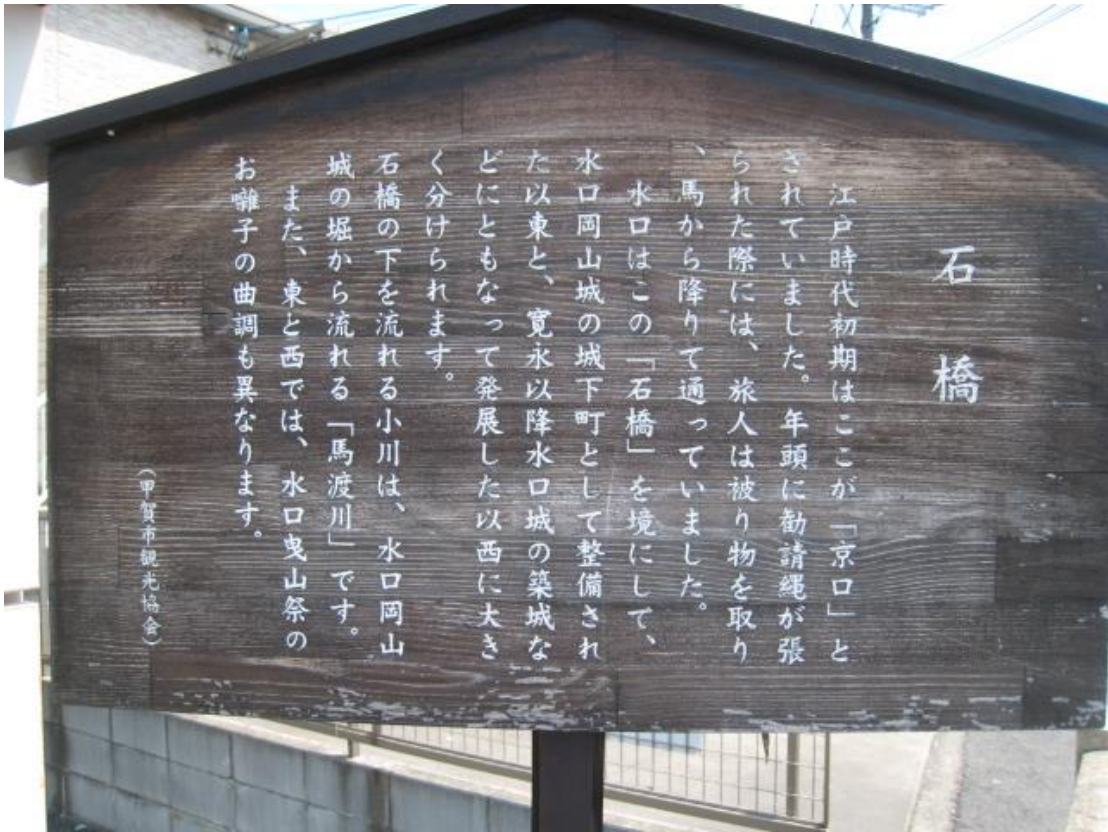 石橋
江戸時代初期はここが「京口」と
されていました。年頭に勧請縄が張
られた際には、旅人は被り物を取り
、馬から降りて通っていました。
水口はこの「石橋」を境にして、
水口岡山城の城下町として整備され
た以東と、寛永以降水口城の築城な
どにともなって発展した以西に大き
く分けられます。
石橋の下を流れる小川は、水口岡山
城の堀から流れる「馬渡川」です。
また、東と西では、水口曳山祭の
お囃子の曲調も異なります。
(甲賀市観光協会)